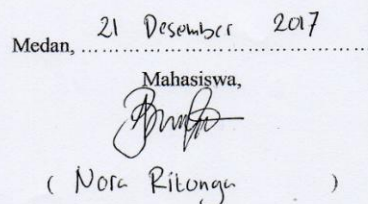 Medan, 21 Desember 2017
Mahasiswa,
( Nora Ritonga )